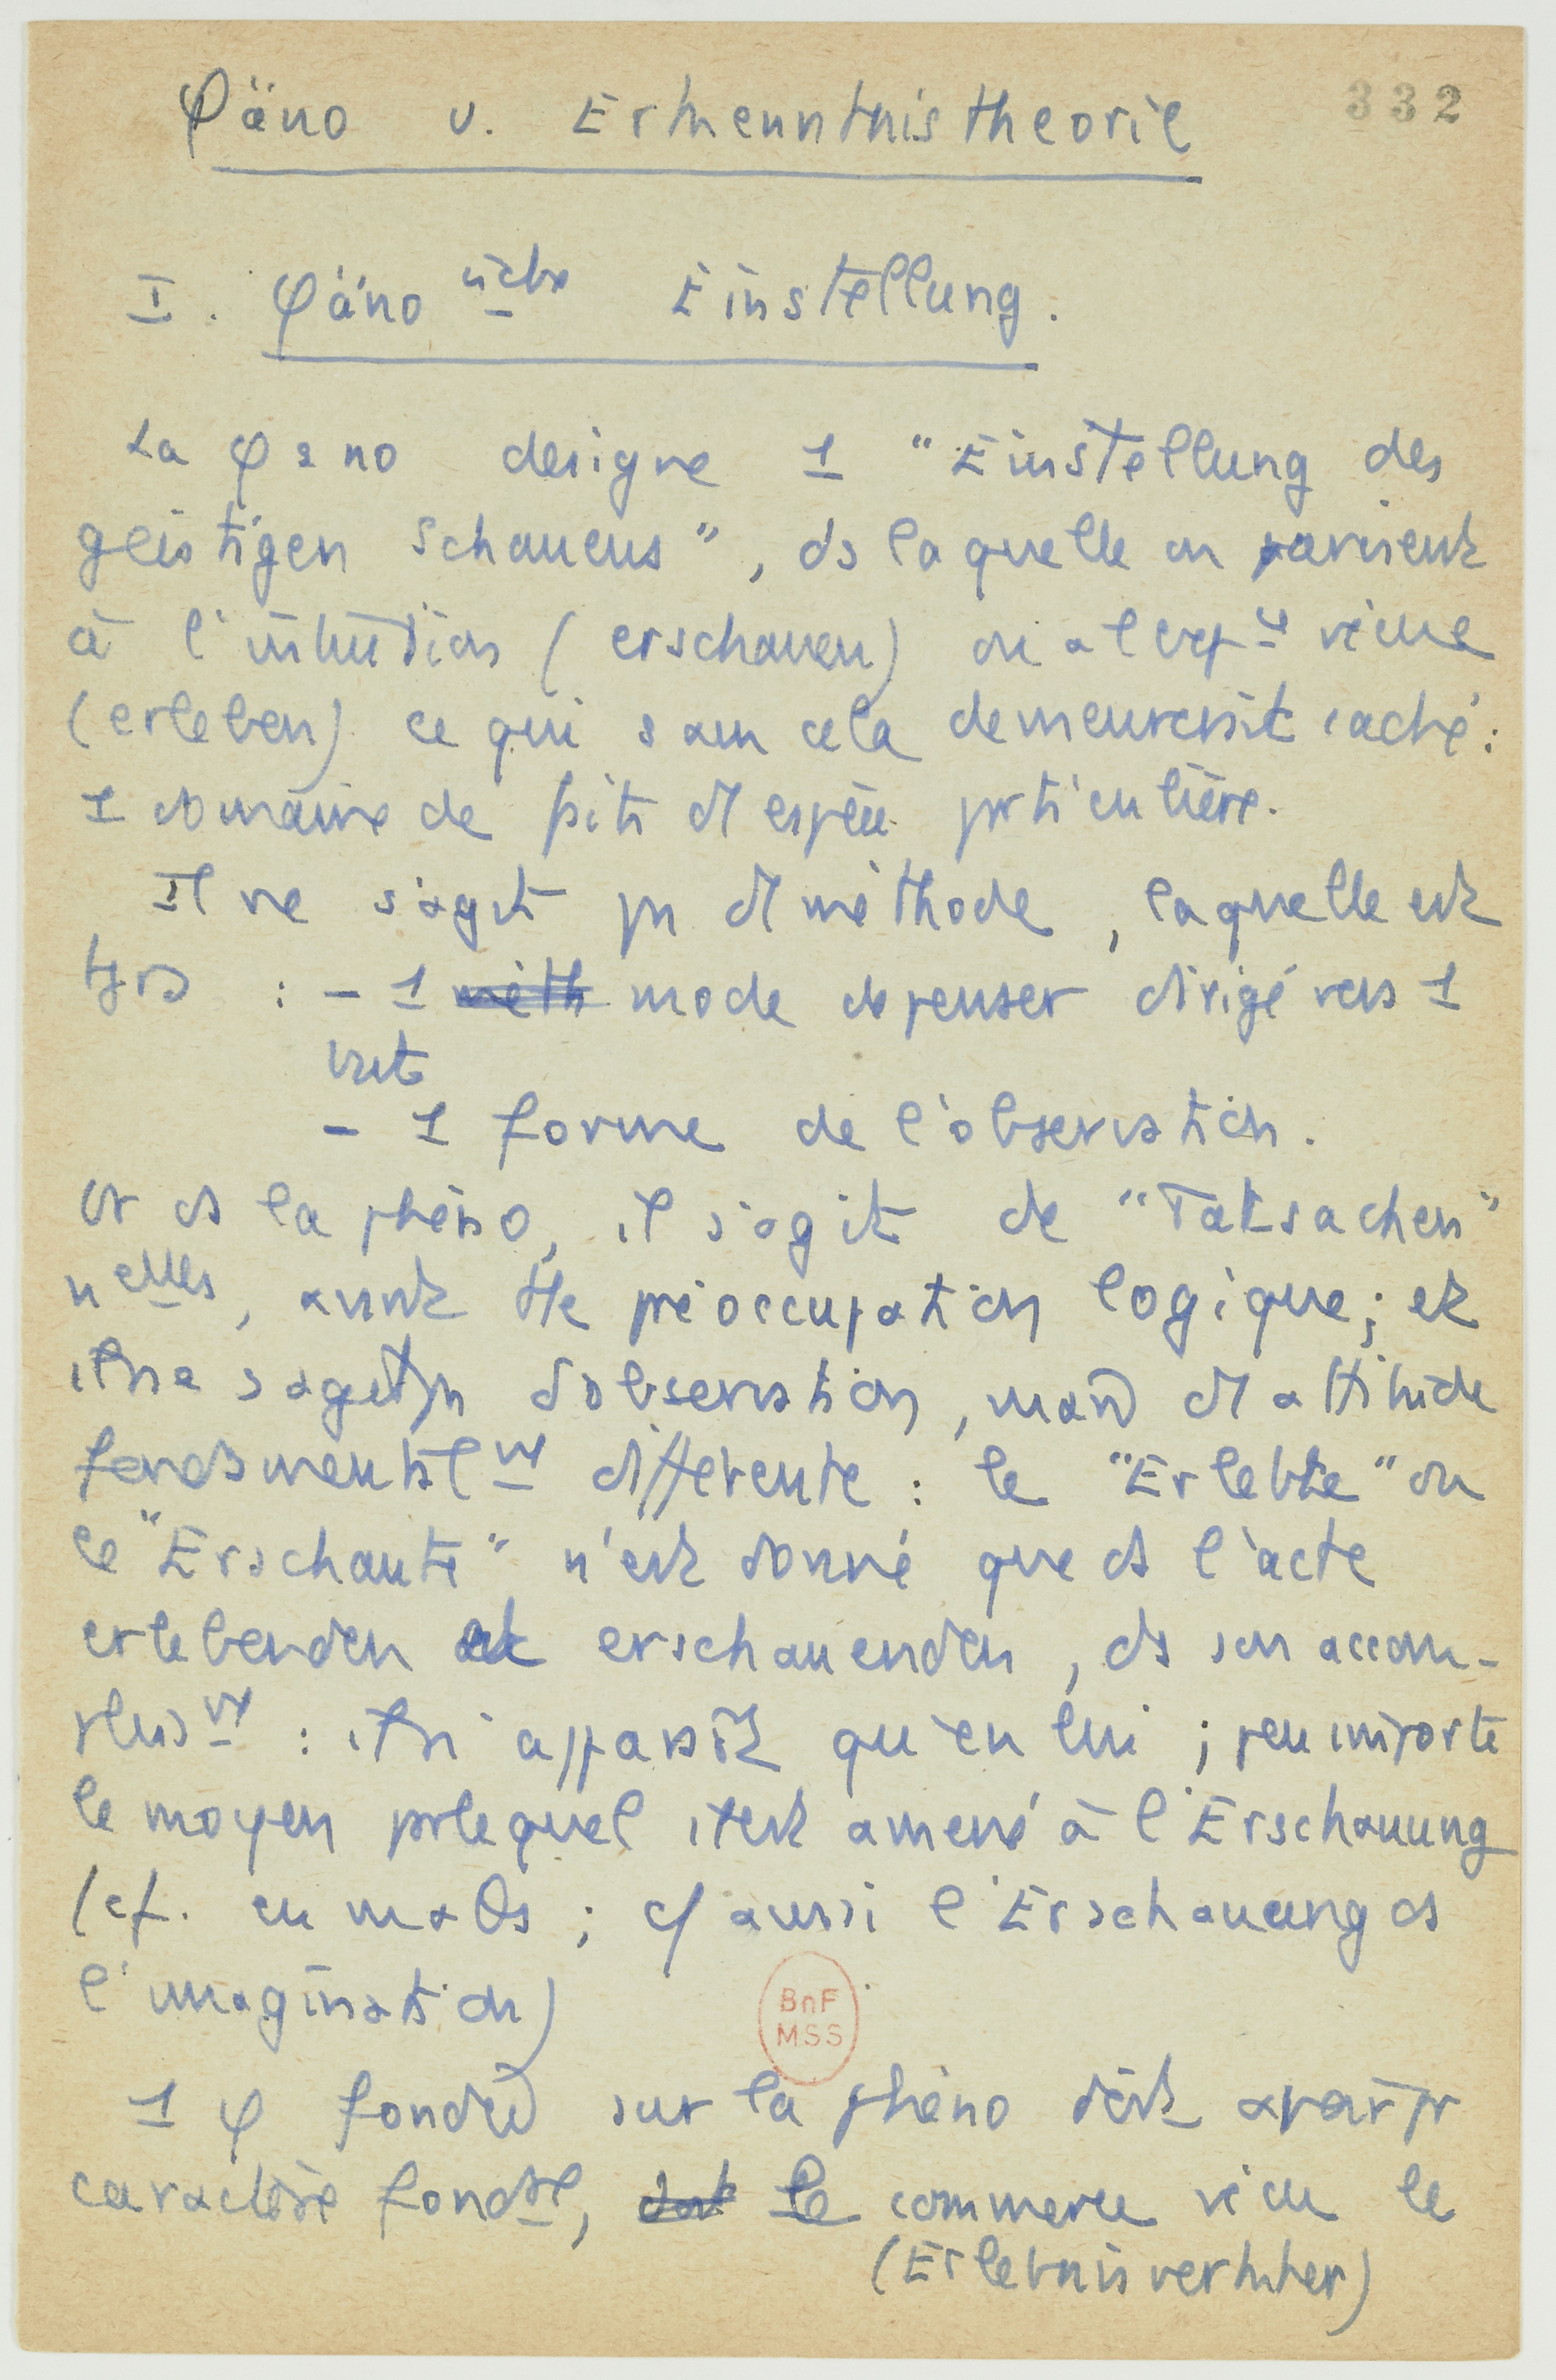 φäno u. Erkenntnistheorie
332
I. φäno ische Einstellung.
La φéno designe 1 "Einstellung des
geistigen Schauens", ds laquelle on parvient
à l'intuition (erschauen) ou a l'exp ce vécue
(erleben) ce qui sans cela demeurerait caché :
1 domaine de faits d'1 espèce particulière.
Il ne s'agit pas d'1 méthode, laquelle est
tjrs : - 1 méth mode de penser dirigé vers 1
but
- 1 forme de l'observation.
Or ds la phéno, il s'agit de "Tatsachen"
nelles, avant tte préoccupation logique ; et
il ne s'agit pas d'observation, mais d'1 attitude
fondamentalmt différente : le "Erlebte" ou
le "Erschaute" n'est donné que ds l'acte
erlebenden et erschauenden, ds son accom-
plissmt : il n'apparaît qu'en lui ; peu importe
le moyen par lequel il est amené à l'Erschauung
(cf. en maths ; cf aussi l'Erschauung ds
l'imagination)
BnF
MSS
1 φ fondée sur la phéno doit avoir pr
caractère fondal, dont le commerce vécu le
(Erlebnisverkehr)